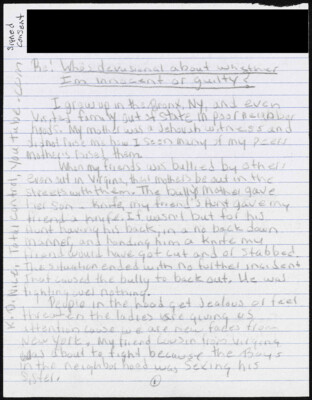 Signed
Consent
Re: Whos devotional about whether
I'm innocent or guilty?
I grow up in the Bronx, NY, and even
visited family out of state in poor neighbor
hoods. My mother was a Jehovah witness and
did not raise me how I seen many of my peers
mothers raised them.
When my friends was bullied by others
even out in Virginia, their mothers be out in the
streets with them. The bully mother gave
her son a knife, my friend's aunt gave my
friend a knife. If it wasn't but for his
aunt having his back, in a no back down
manner, and handing him a knife my
friend would have got cut and or stabbed.
The situation ended with no further incident
that caused the bully to back out. He was
fighting over nothing.
People in the hood get jealous or feel
threaten the ladies are giving us
attention cause we are new faces from
New York. My friend cousin from Virginia
was about to fight because the Boys
in the neighborhood was seeing his
sister.
1